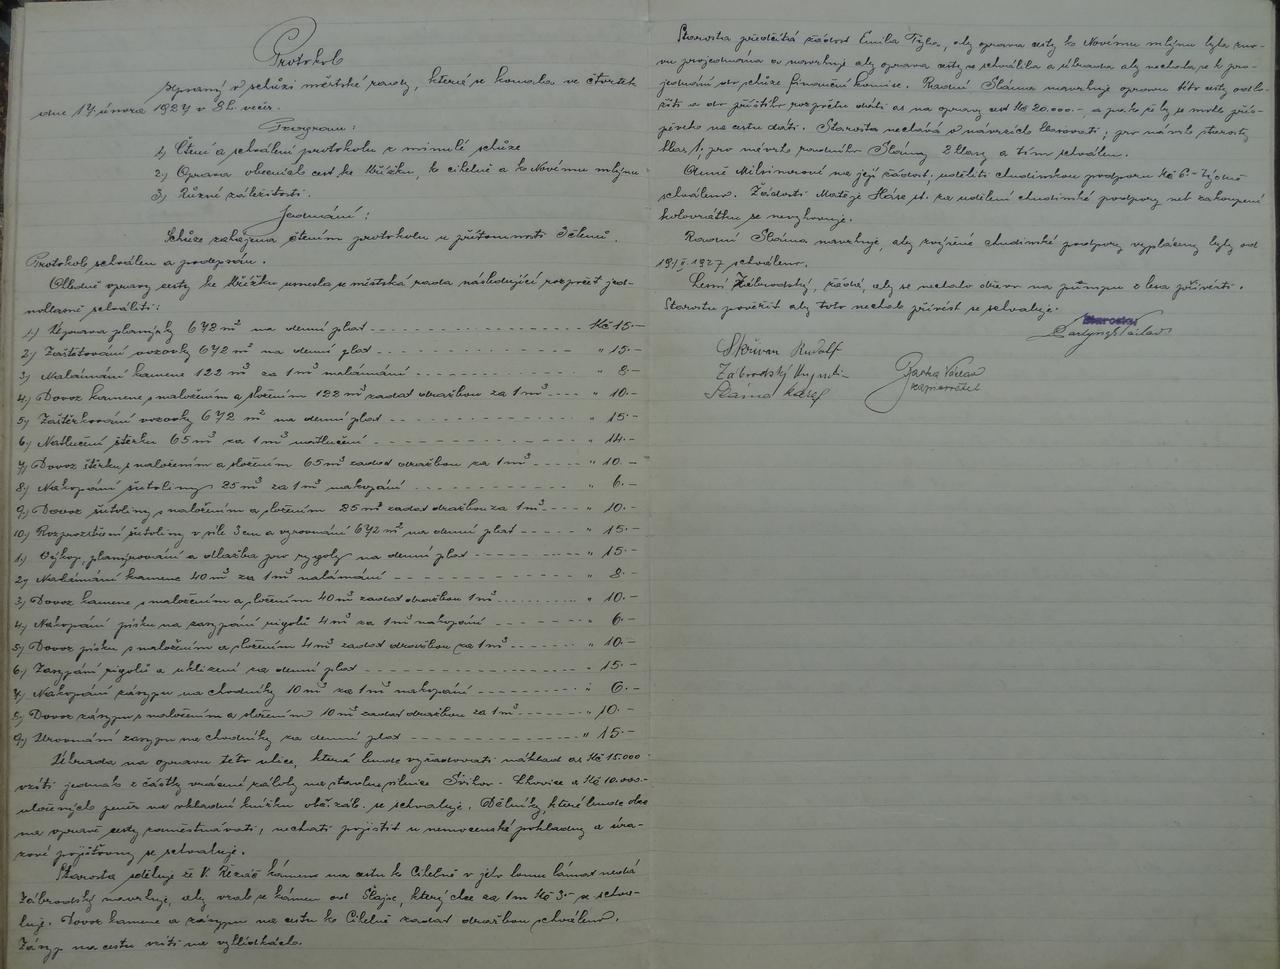 Protokol
sepsaný v schůzi městské rady, která se konala ve čtvrtek
dne 17. února 1927 v 8 h. večer.
Program:
1) Čtení a schválení protokolu z minulé schůze
2) Oprava obecních cest ke Křížku, k cihelně a k Novému mlýnu
3) Různé záležitosti.
Jednání:
Schůze zahájena čtením protokolu u přítomnosti členů.
Protokol schválen a podepsán.
Ohledně opravy cesty ke Křížku usnesla se městská rada následující rozpočet jed-
nohlasně schváliti:
1.) Úprava planýrky 672 m² na denní plat Kč 15.-
2) Zaštětování vozovky 672 m² na denní plat " 15.-
3) Nalámání kamene 122 m³ za 1 m³ nalámání " 8.-
4) Dovoz kamene s naložením a složením 122 m³ zadat dražbou za 1 m³ " 10.-
5) Zaštěrkování vozovky 672 m² na denní plat " 15.-
6) Natlučení štěrku 65 m³ za 1 m³ natlučení " 14.-
7) Dovoz štěrku s naložením a složením 65 m³ zadat dražbou za 1 m³ " 10.-
8) Nakopání šutoliny 25 m³ za 1 m³ nakopání " 6.-
9) Dovoz šutoliny s naložením a složením 25 m³ zadat dražbou za 1 m³ " 10.-
10) Rozprostření šutoliny v síle 3 cm a vyrovnání 672 m² na denní plat " 15.-
1.) Výkop, planýrování a dlažba pro rygoly na denní plat " 15.-
2) Nalámání kamene 40 m³ za 1 m³ nalámání " 8.-
3) Dovoz kamene s naložením a složením 40 m³ zadat dražbou 1 m³ " 10.-
4) Nakopání písku na zasypání rigolů 4 m³ za 1 m³ nakopání " 6.-
5) Dovoz písku s naložením a složením 4 m³ zadat dražbou za 1 m³ " 10.-
6) Zasypání rigolů a uklizení na denní plat " 15.-
7) Nakopání zásypu na chodníky 10 m³ za 1 m³ nakopání " 6.-
8) Dovoz zásypu s naložením a složením 10 m³ zadat dražbou za 1 m³ " 10.-
9) Urovnání zásypu na chodníky za denní plat " 15.-
Úhrada na opravu této ulice, která bude vyžadovati náklad as Kč 15.000
vzíti jednak z částky vrácené zálohy na stavbu silnice Švihov - Lhovice a Kč 10.000.-
uložených peněz na vkladní knížku se schvaluje. Dělníky, které bude obec
na opravě cesty zaměstnávati, nechati pojistit u nemocenské pokladny a úra-
zové pojišťovny se schvaluje.
Starosta sděluje že V. Řezáč kámen na cestu k Cihelně v jeho lomu lámat nedá
Zábrodský navrhuje, aby vzal se kámen od Šlajse, který chce za 1 m Kč 3.- se schva-
luje. Dovoz kamene a zásypu na cestu k Cihelně zadat dražbou schváleno.
Zásyp na cestu vzíti na vyhlídkách.
Starosta předčítá žádost Emila, aby oprava cesty k Novému mlýnu byla zno-
vu projednána a navrhuje aby oprava cesty se schválila a úhrada aby nechala se k pro-
jednání do schůze finanční komise. Radní Sláma navrhuje opravu této cesty odlo-
žiti a do příštího rozpočtu dáti as na opravy cest Kč 20.000.-, a pak že by se mohlo přís-
pěvek na cestu dáti. Starosta nechává o návrzích hlasovati; pro návrh starosty
hlas 1, pro návrh radního Slámy 2 hlasy a tím schválen.
Milsimerové na její žádost, uděliti chudinskou podporu Kč 6.- týdně
schváleno. Žádosti Matěje st. za udělení chudinské podpory neb zakoupení
kolovrátku se nevyhovuje.
Radní Sláma navrhuje, aby zvýšené chudinské podpory vypláceny byly od
1927 schváleno.
Lesní Zábrodský, žádá, aby se nechalo dřevo na pumpu z lesa přivézti.
Starostu pověřit aby toto nechal přivést se schvaluje.
Starosta:
Václav
Skřivan Rudolf
Zábrodský Augustin
Sláma Karel
Václav
zapisovatel